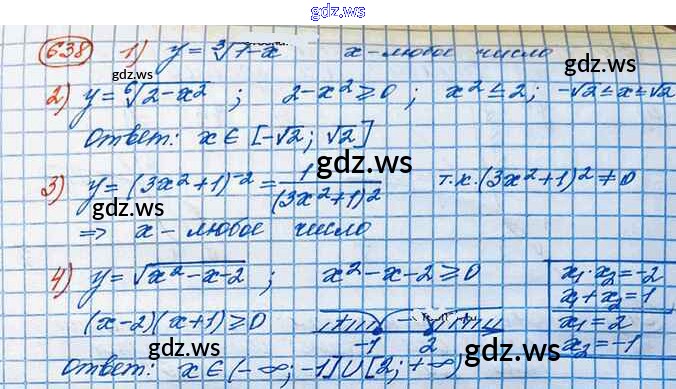 gdz.ws
638 1) y = ∛1-x x - любое число
gdz.ws
gdz.ws
2) y = ⁶√2-x² ; 2-x² ⩾ 0 ; x² ≤ 2; -√2 ≤ x ≤ √2
Ответ: x ∈ [-√2; √2]
gdz.ws
3) y = (3x²+1)⁻² = 1/(3x²+1)² т.к. (3x²+1)² ≠ 0
gdz.ws
⇒ x - любое число
4) y = √x²-x-2 ; x²-x-2 ⩾ 0 x₁·x₂ = -2
x₁+x₂ = 1
(x-2)(x+1) ⩾ 0 + - + x₁ = 2
-1 2 x₂ = -1
gdz.ws
gdz.ws
Ответ: x ∈ (-∞; -1] ∪ [2; +∞)